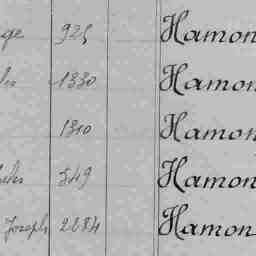 ge 925 Hamon
les 1330 Hamon
1310 Hamon
les 549 Hamon
Joseph 2284 Hamon